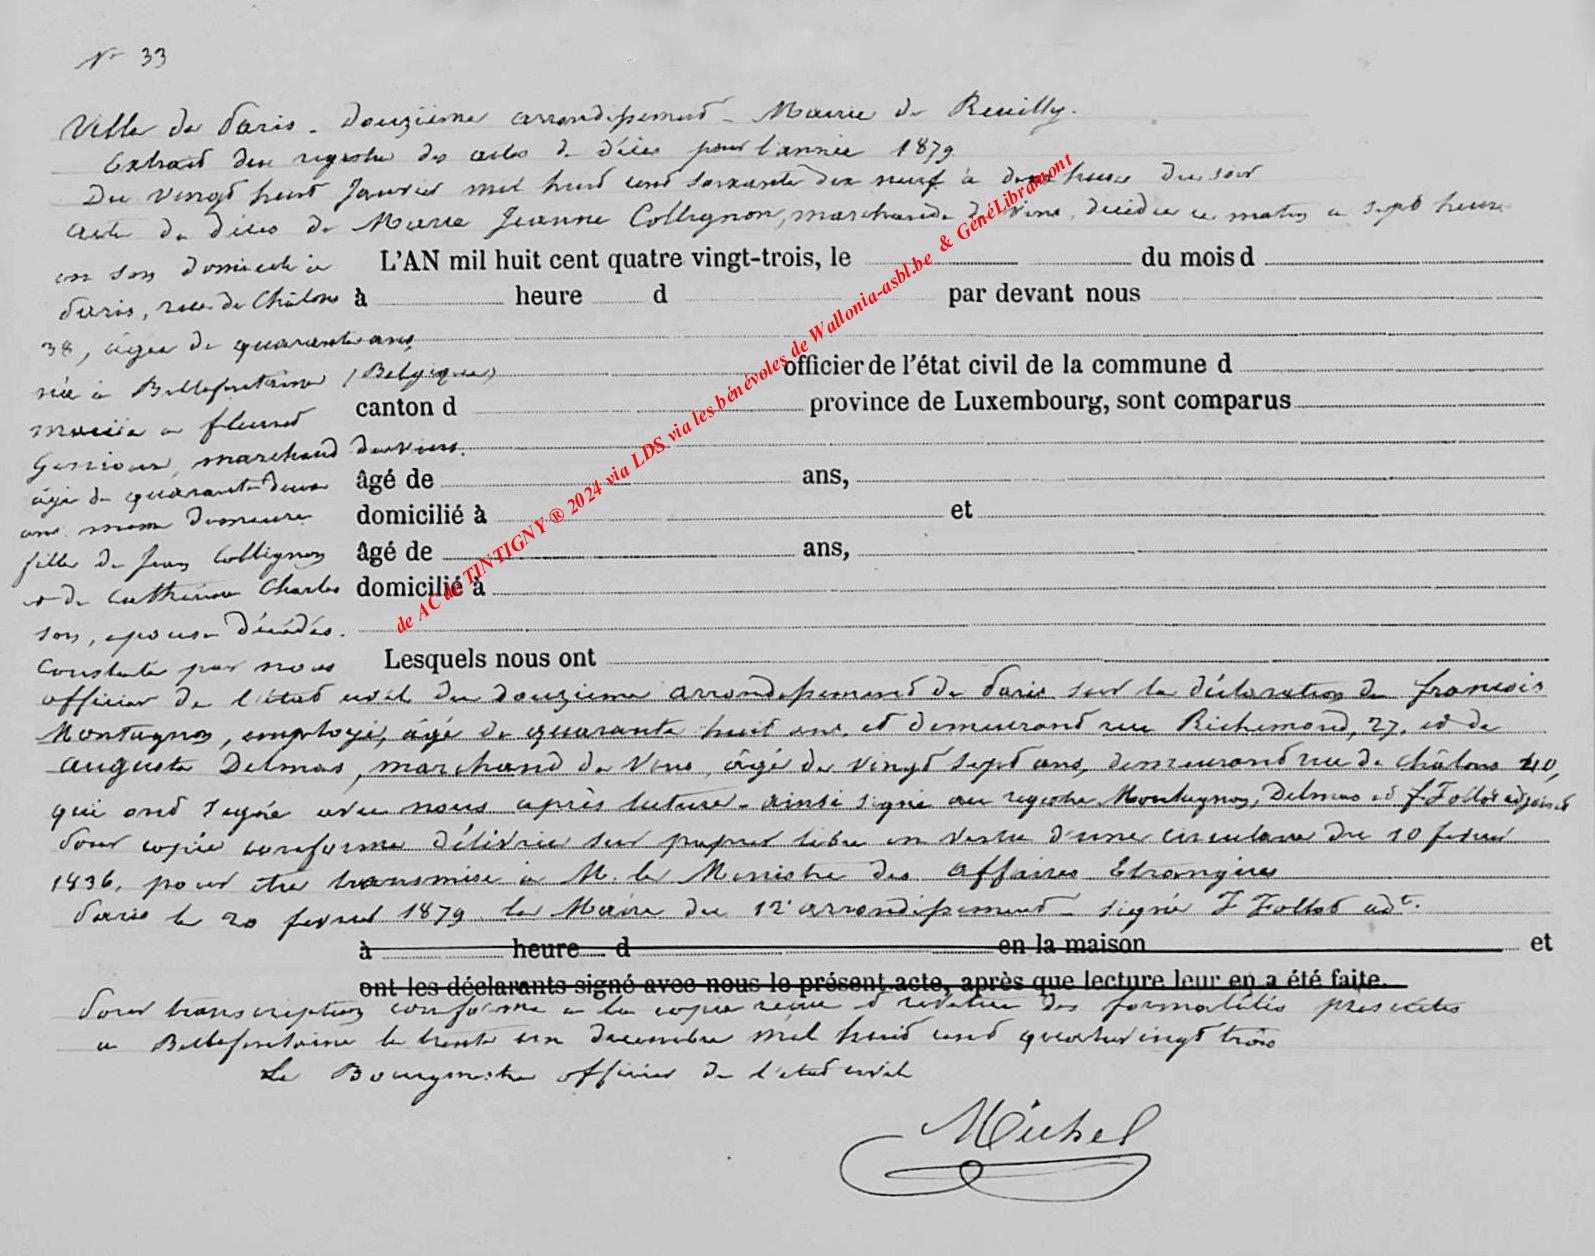 N° 33
Ville de Paris - Douzième arrondissement - Mairie de Reuilly.
Extrait des registre des actes de décès pour l'année 1879
Du vingt huit Janvier mil huit cent soixante dix neuf à deux heures du soir
acte de décès de Marie Jeanne Collignon, marchande de vins, décédée ce matin à sept heures
en son domicile à L'AN mil huit cent quatre vingt-trois, le du mois d
Paris, rue de Châlons à heure d par devant nous
38, âgée de quarante ans,
née à Bellefontaine (Belgique) officier de l'état civil de la commune d
mariée à fleuret canton d province de Luxembourg, sont comparus
marchand de vins.
âgé de quarante deux âgé de ans,
ans même demeure domicilié à et
fille de Jean Collignon âgé de ans,
et de Catherine Charles domicilié à
son, epoux décédés.
Constaté par nous Lesquels nous ont
officier de l'état civil du douzième arrondissement de Paris sur la déclaration de françois
Montagnon, employé, âgé de quarante huit ans, et demeurant rue Richemond, 27, et de
auguste Delmas, marchand de vins, âgé de vingt sept ans, demeurant rue de Châlons 40,
qui ont signé avec nous après lecture - ainsi signé au registre Montagnon, Delmas et F. Follot adjoint
Pour copie conforme délivrée sur papier libre en vertu d'une circulaire du 10 fevrier
1836, pour être transmise à M. le Ministre des Affaires Etrangères
Paris le 20 fevrier 1879 le Maire du 12e arrondissement - signé F Follot adt.
à heure d en la maison et
ont les déclarants signé avec nous le présent acte, après que lecture leur en a été faite.
Pour transcription conforme à la copie reçue et revêtue des formalités prescrites
a Bellefontaine le trente un decembre mil huit cent quatre vingt trois
Le Bourgmestre officier de l'etat civil
Michel
de AC de TINTIGNY ® 2024 via LDS via les bénévoles de Wallonia-asbl.be & GénéLibramont